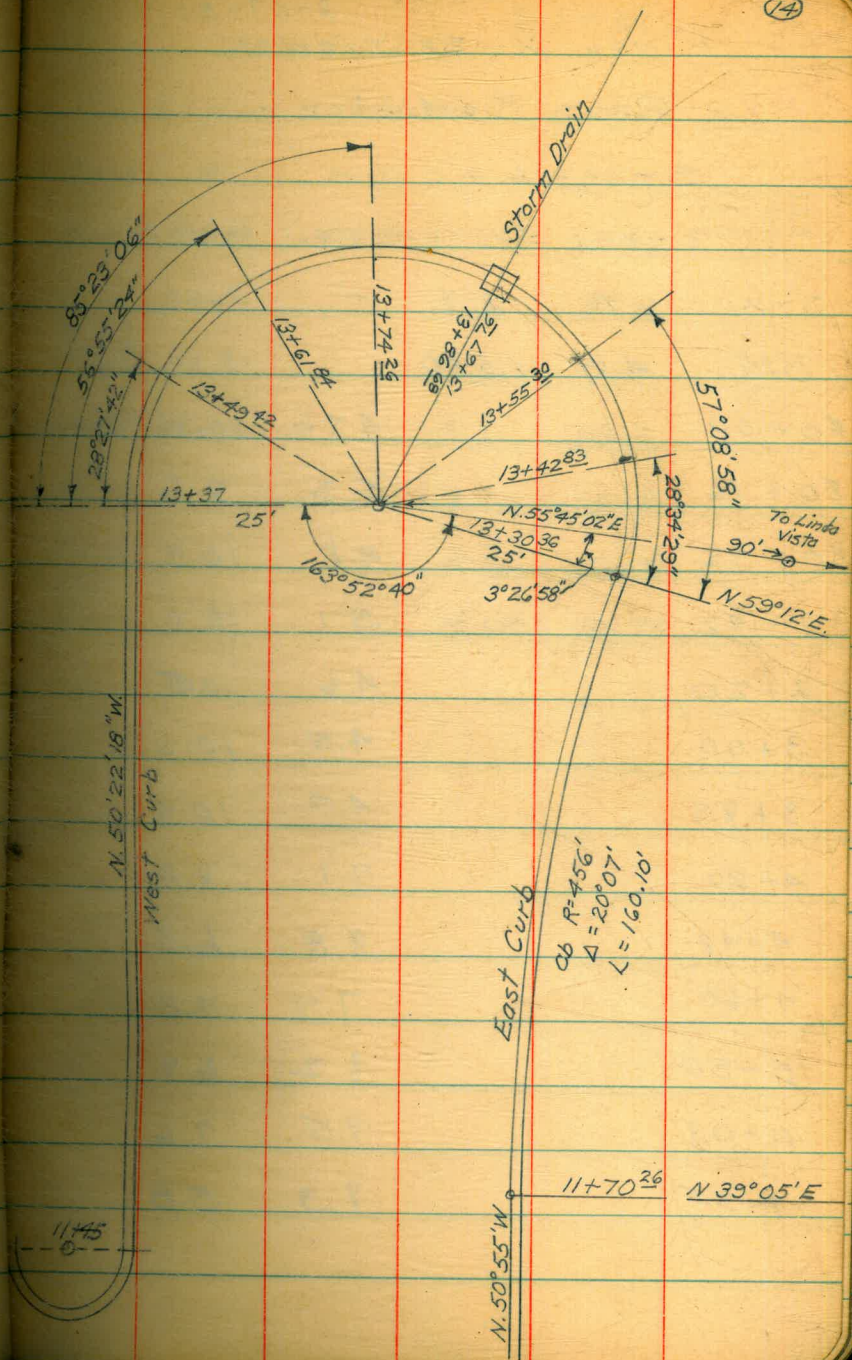 14
Storm Drain
85°23'06"
56°55'24"
28°27'42"
13+74 26
13+61 84
13+49 42
13+86 68
13+67 76
13+55 30
57°08'58"
13+42 83
28°34'29"
13+37
25'
N.55°45'02"E
13+30 36
25'
To Linda
Vista
90'
163°52'40"
3°26'58"
N.59°12'E.
N.50°22'18"W.
West Curb
East Curb
Cb R=456'
Δ=20°07'
L=160.10'
11+70 26
N 39°05'E
11+45
N.50°55'W